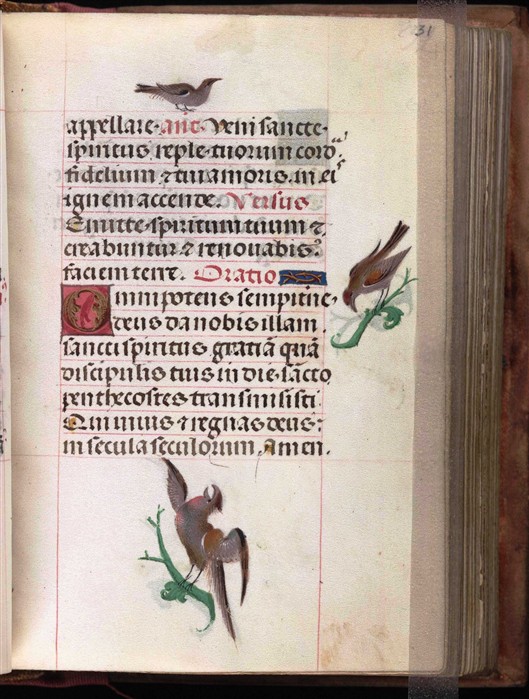 31
appellare. ant̄. Veni sancte
spiritus reple tuorum cord
fidelium ⁊ tui amoris. in ei
ignem accende. Versus
Emitte spiritum tuum ⁊
creabuntur ⁊ renovabis
faciem terre. Oratio
Omnipotens sempitne
deus da nobis illam
sancti spiritus gratiā quā
discipulis tuis in die sācto
penthecostes transmisisti
Qui vivis ⁊ regnas deus:
in secula seculorum. Amen.